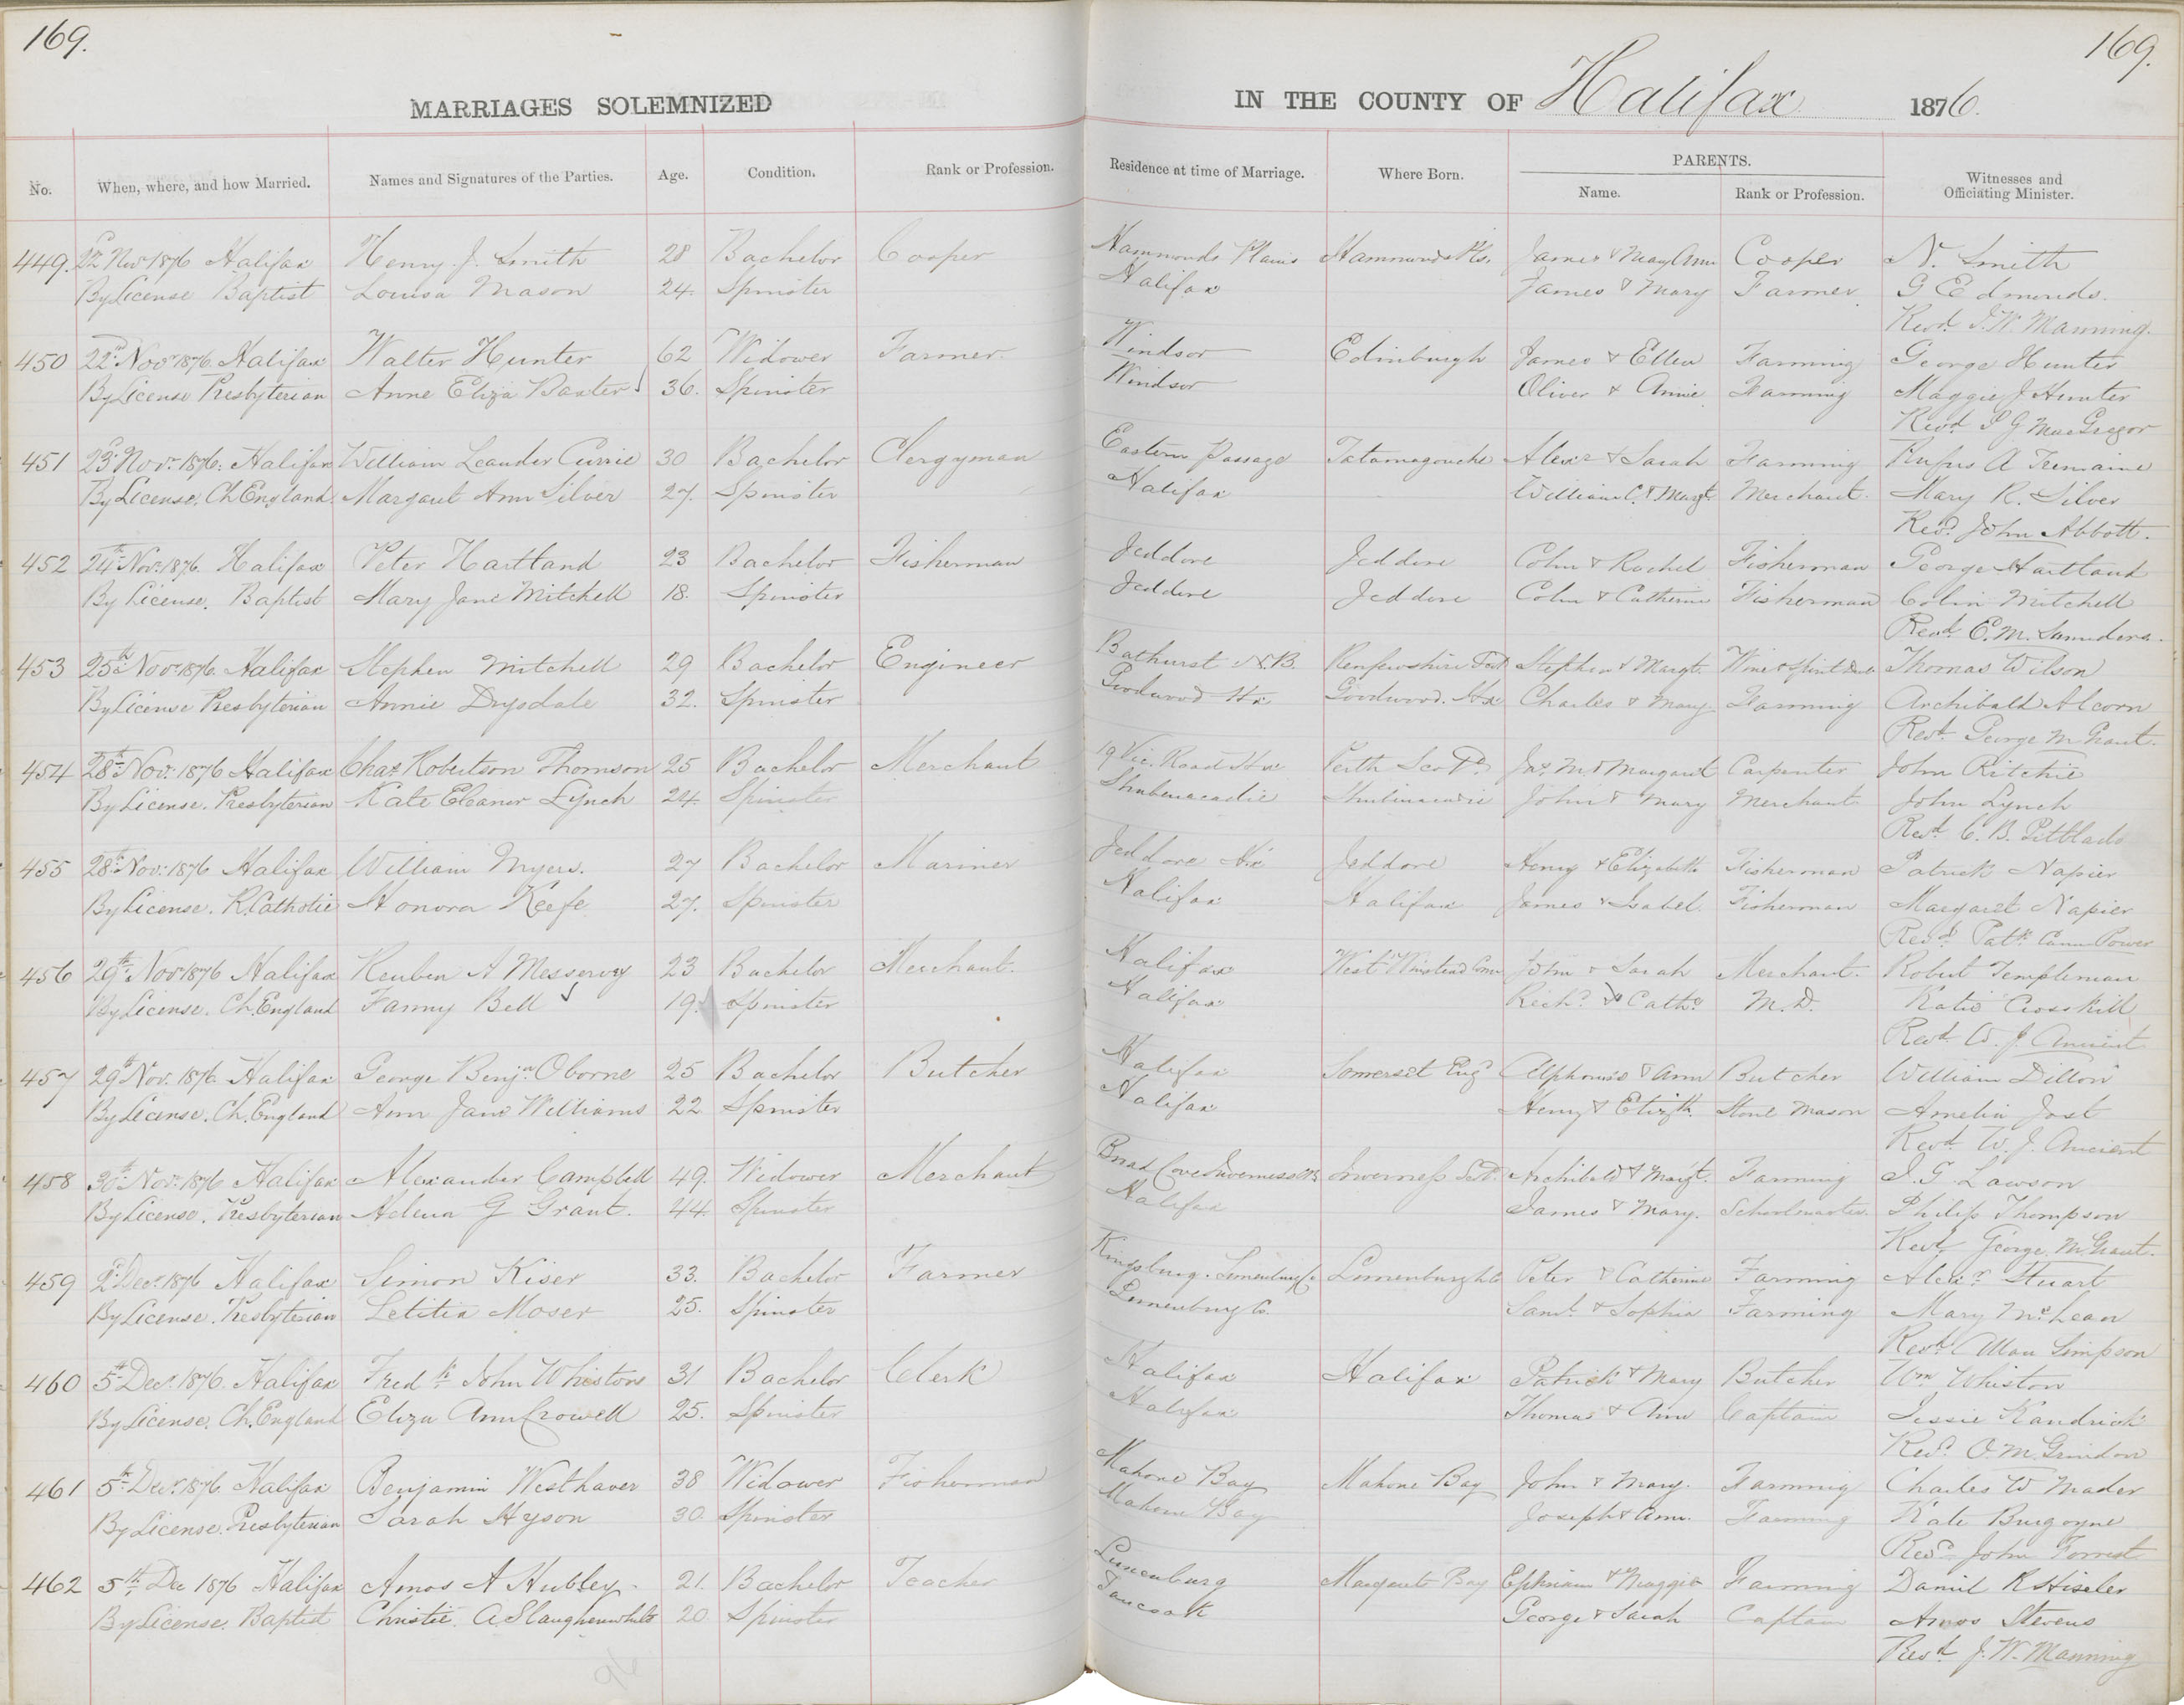 169.
169.
MARRIAGES SOLEMNIZED IN THE COUNTY OF Halifax 1876.
PARENTS.
No. When, where, and how Married. Names and Signatures of the Parties. Age. Condition. Rank or Profession. Residence at time of Marriage. Where Born. Name. Rank or Profession. Witnesses and Officiating Minister.
449. 22d Nov 1876 Halifax Henry J. Smith 28 Bachelor Cooper Hammonds Plains Hammonds Pls. James & Mary Ann Cooper N. Smith
By License Baptist Louisa Mason 24. Spinster Halifax James & Mary Farmer G Edmonds.
Revd. J. W. Manning.
450 22d Novr 1876. Halifax Walter Hunter 62 Widower Farmer. Windsor Edinburgh James & Ellen Farming George Hunter
By License Presbyterian Anne Eliza Baxter 36. Spinster Windsor Oliver & Annie Farming Maggie J Hunter
Revd. P G MacGregor
451 23d Novr 1876. Halifax William Leander Currie 30 Bachelor Clergyman Eastern Passage Tatamagouche Alexr & Sarah Farming Rufus A Tremaine
By License. Ch England Margaret Ann Silver 27. Spinster Halifax William C. & Margt. Merchant. Mary R. Silver
Revd. John Abbott.
452 24th Novr. 1876. Halifax Peter Hartland 23 Bachelor Fisherman Jeddore Jeddore Colin & Rachel Fisherman George Hartland
By License. Baptist Mary Jane Mitchell 18. Spinster Jeddore Jeddore Colin & Catherine Fisherman Colin Mitchell
Revd. E. M. Saunders.
453 25th Novr 1876. Halifax Stephen Mitchell 29 Bachelor Engineer Bathurst N.B. Renfrewshire Stephen & Margt. Wine & Spirit Thomas Wilson
By License Presbyterian Annie Drysdale 32. Spinster Goodwood Hx Goodwood. Hx Charles & Mary Farming Archibald Alcorn
Revd. George M Grant.
454 28th Novr. 1876 Halifax Chas. Robertson Thomson 25 Bachelor Merchant 19 Vic. Road Hx Perth Scotd. Jas. M & Margaret Carpenter John Ritchie
By License. Presbyterian Kate Eleanor Lynch 24. Spinster Shubenacadie Shubenacadie John & Mary Merchant John Lynch
Revd. C. B. Pitblado
455 28th Nov. 1876 Halifax William Myers. 27 Bachelor Mariner Jeddore Hx Jeddore Henry & Elizabeth Fisherman Patrick Napier
By License. R. Catholic Honora Keefe 27. Spinster Halifax Halifax James & Isabel. Fisherman Margaret Napier
Revd. Patk. Power
456 29th Novr 1876 Halifax Reuben A Messervey 23 Bachelor Merchant. Halifax West Winstead Conn John & Sarah Merchant. Robert Templeman
By License. Ch. England Fanny Bell 19. Spinster Halifax Richd. & Cathe. M.D. Katie Crosskill
Revd. W. J. Ancient
457 29th Nov. 1876 Halifax George Benjn. Oborne 25 Bachelor Butcher Halifax Somerset Engd Alphonso & Ann Butcher William Dillon
By License. Ch. England Ann Jane Williams 22 Spinster Halifax Henry & Elizth. Stone Mason Amelia Jost
Revd. W. J. Ancient
458 30th Novr. 1876 Halifax Alexander Campbell 49. Widower Merchant Broad Cove Inverness Inverness Scd. Archibald & Margt. Farming J. G Lawson
By License. Presbyterian Helena G Grant. 44. Spinster Halifax James & Mary. Schoolmaster. Philip Thompson
Revd. George M. Grant.
459 2d Decr. 1876 Halifax Simon Kiser 33. Bachelor Farmer Kingsburg. Lunenburg Co Lunenburg Co Peter & Catherine Farming Alexr. Stuart
By License. Presbyterian Letitia Moser 25. Spinster Lunenburg Co. Saml. & Sophia Farming Mary McLean
Revd. Allan Simpson
460 5th Decr. 1876. Halifax Fredk. John Whiston 31 Bachelor Clerk Halifax Halifax Patrick & Mary Butcher Wm Whiston
By License. Ch. England Eliza Ann Crowell 25. Spinster Halifax Thomas & Ann Captain Jessie Kandrick
Revd. O. M. Grindon
461 5th Decr. 1876. Halifax Benjamin Westhaver 38 Widower Fisherman Mahone Bay Mahone Bay John & Mary. Farming Charles W Mader
By License. Presbyterian Sarah Hyson 30. Spinster Mahone Bay Joseph & Ann. Farming Kate Burgoyne
Revd. John Forrest
462 5th Dec 1876 Halifax Amos A Hubley. 21. Bachelor Teacher Lunenburg Margarets Bay Ephriam & Maggie Farming Daniel R Hiseler
By License. Baptist Christie A Slaughenwhite 20 Spinster Tancook George & Sarah Captain Amos Stevens
Revd. J. W. Manning
96